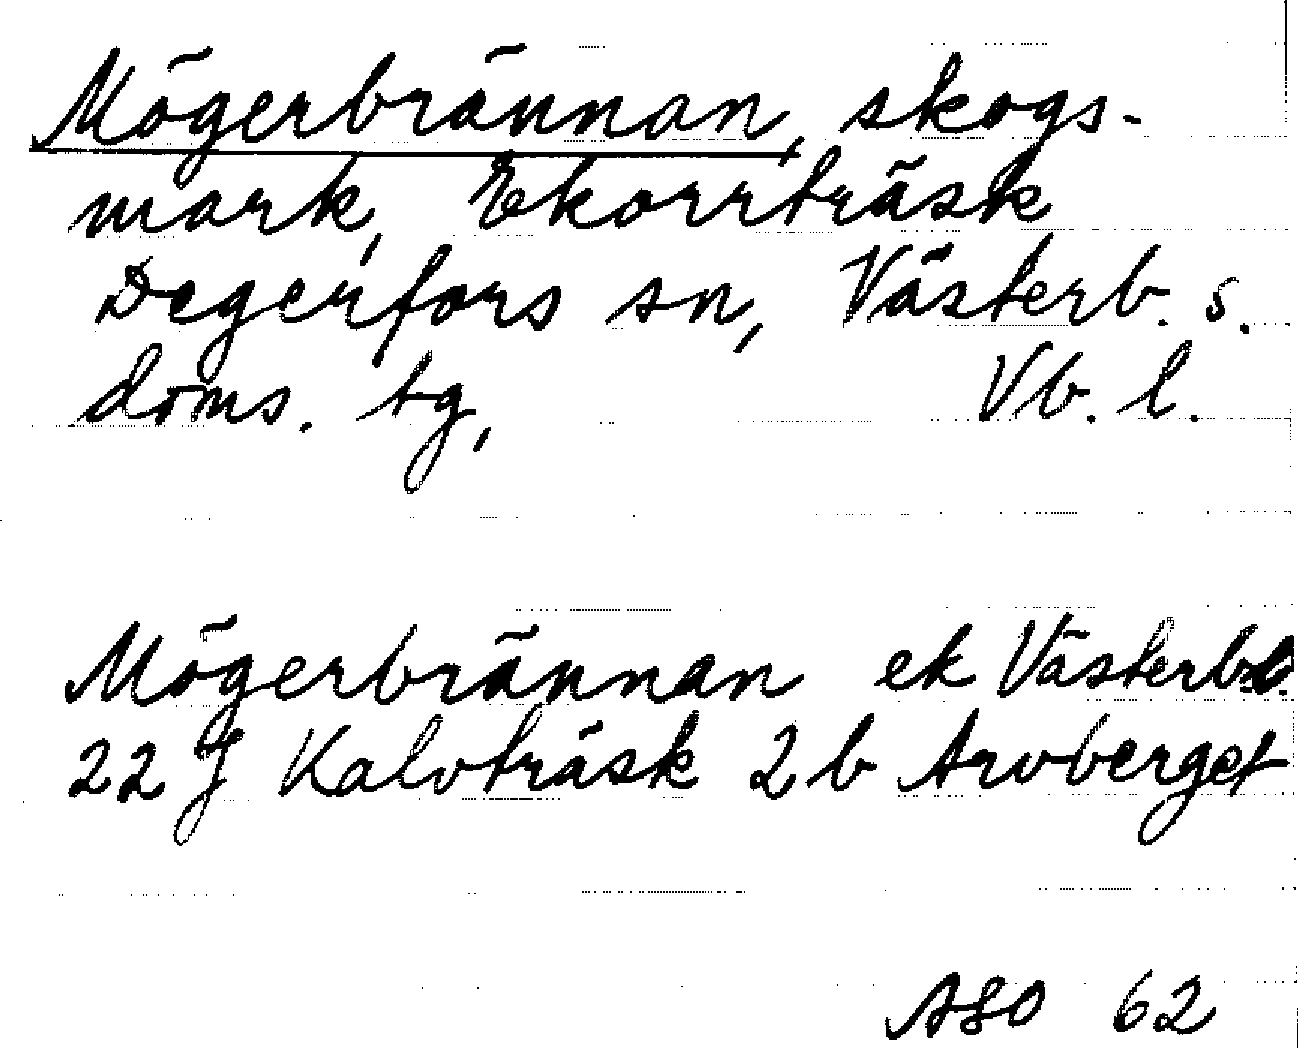 Mögerbrännan, skogs-
mark, Ekorrträsk
Degerfors sn, Västerb. s.
doms. tg, Vb. l.
Mögerbrännan ek Västerb.
22 J Kalvträsk 2 b Arvberget
ASO 62